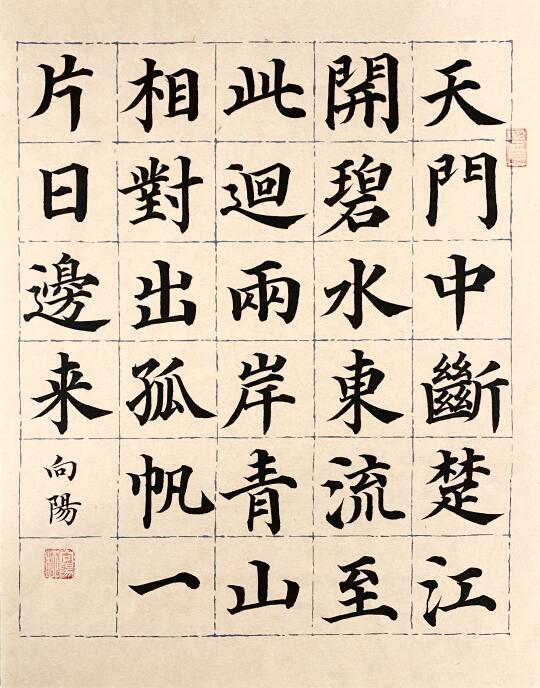 天門中斷楚江
開碧水東流至
此迴兩岸青山
相對出孤帆一
片日邊来
向陽